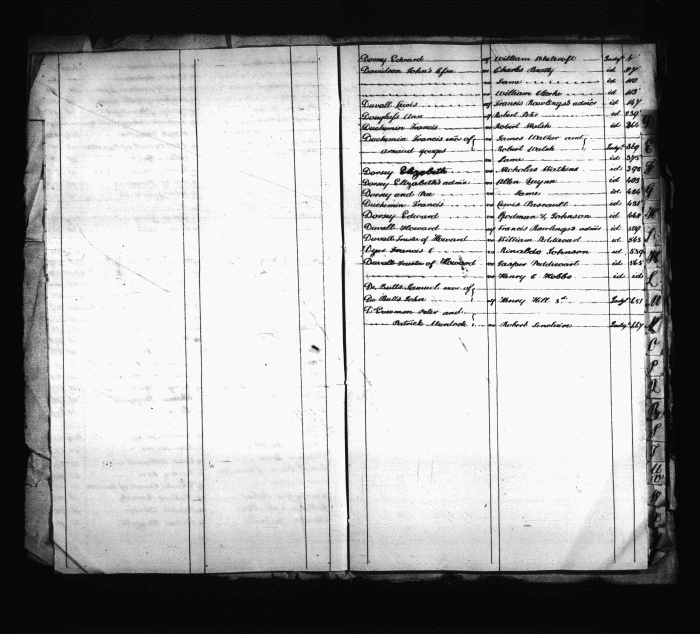 Dorsey Edward vs William Whitcroft Judgt 4
Davidson John's Exx. vs Charles Beatty id 87
vs Same id 110
vs William Clarke id 113
Duvall Lewis vs Francis Rawlings's admors id 147
Ann vs Robert id 239
Duchemin Francis vs Robert Walsh id 264
Duchemin Francis exor of vs James Walker and
Arnaud vs Robert Walsh Judgt 369
vs Same id 375
Dorsey Elizabeth vs Nicholas Watkins id 398
Dorsey Elizabeth's admrx vs Allen Quynn id 403
Dorsey and vs Same id 424
Duchemin Francis vs Lewis Pascault id 431
Dorsey Edward vs Bodman & Johnson id 448
Duvall Howard vs Francis Rawlings's admors id 529
Duvall Trustee of Howard vs William id 543
Francis vs Rinaldo Johnson id 539
Duvall Trustee of Howard vs Jasper id 565
vs Henry C Hobbs id id
De Butts Samuel exor of
De Butts John vs Henry Hill Judgt 651
Peter and
Patrick Murdoch vs Robert Judgt 667
E
G
H
I
L
M
O
P
Q
R
S
T